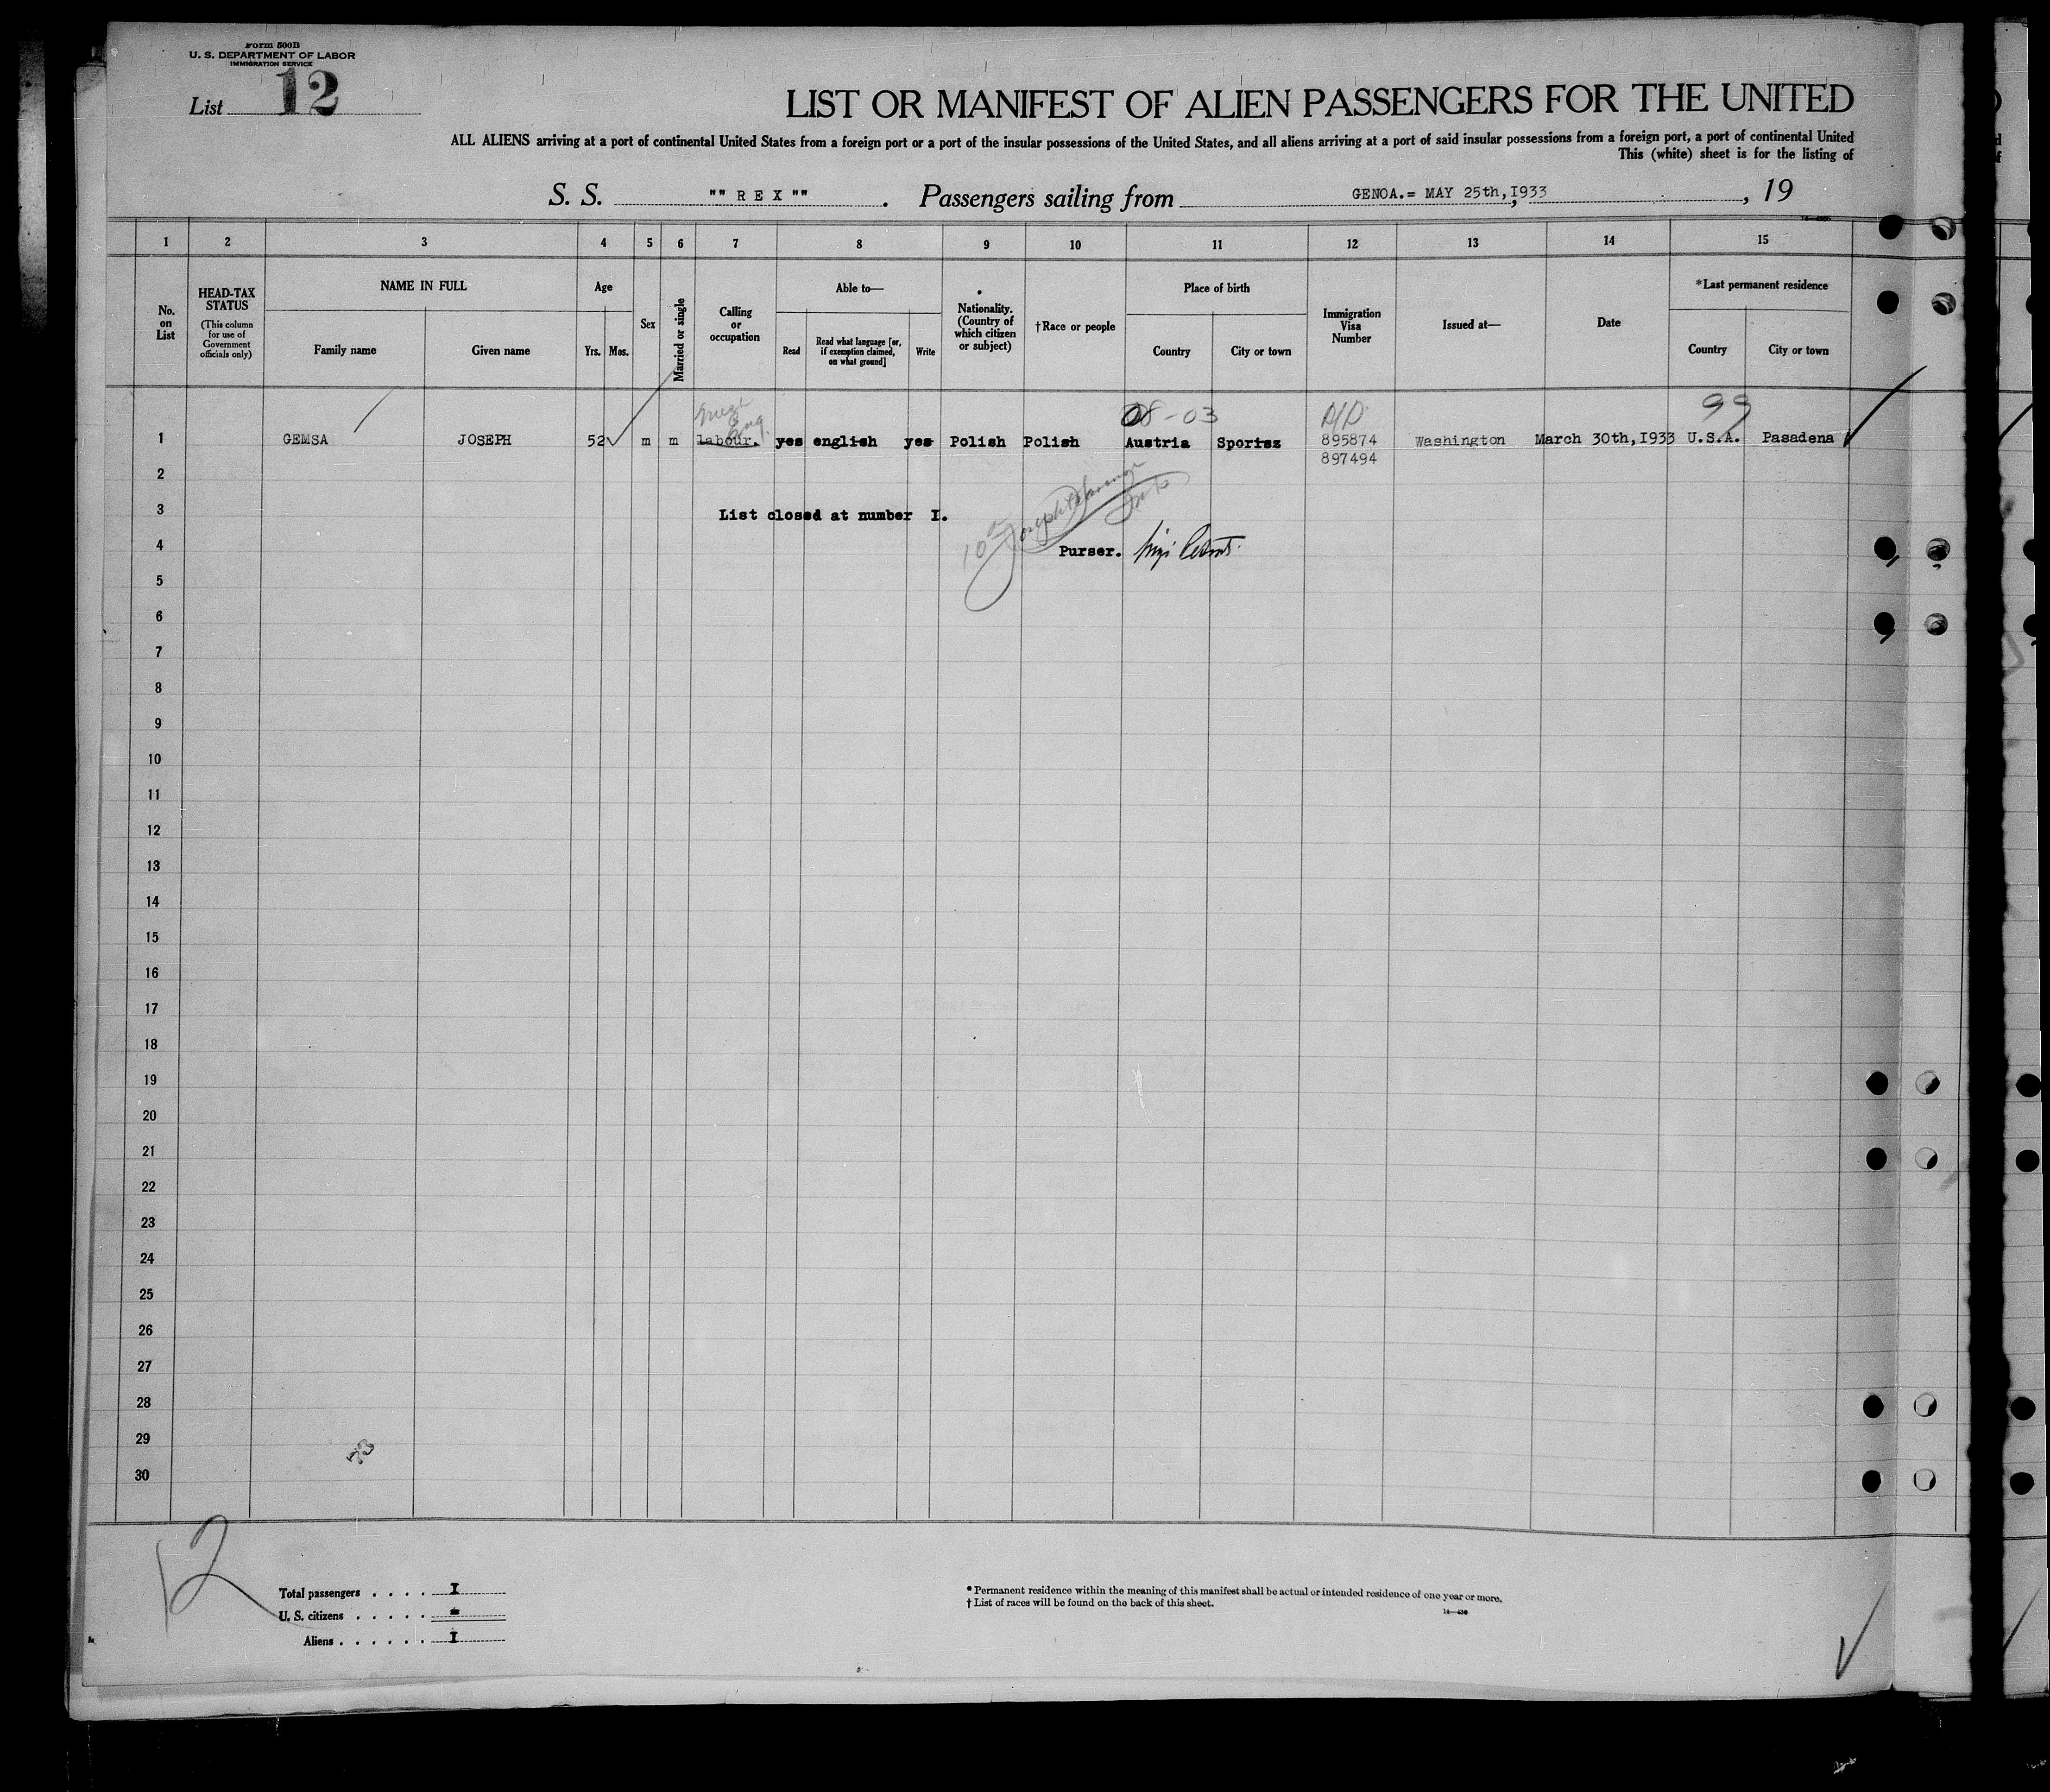 Form 500B
U. S. DEPARTMENT OF LABOR
IMMIGRATION SERVICE
List 12
LIST OR MANIFEST OF ALIEN PASSENGERS FOR THE UNITED
ALL ALIENS arriving at a port of continental United States from a foreign port or a port of the insular possessions of the United States, and all aliens arriving at a port of said insular possessions from a foreign port, a port of continental United
This (white) sheet is for the listing of
S. S. "" R E X "" . Passengers sailing from GENOA.= MAY 25th,I933 , 19
1 2 3 4 5 6 7 8 9 10 11 12 13 14 15
No. on List
HEAD-TAX STATUS
(This column for use of Government officials only)
NAME IN FULL
Family name Given name
Age
Yrs. Mos.
Sex
Married or single
Calling or occupation
Able to—
Read
Read what language [or, if exemption claimed, on what ground]
Write
Nationality. (Country of which citizen or subject)
†Race or people
Place of birth
Country City or town
Immigration Visa Number
Issued at—
Date
*Last permanent residence
Country City or town
08-03 99
1 GEMSA JOSEPH 52 m m labour. yes english yes Polish Polish Austria Sporisz 895874 Washington March 30th,I933 U.S.A. Pasadena
897494
2
3 List closed at number I.
4 Purser.
5
6
7
8
9
10
11
12
13
14
15
16
17
18
19
20
21
22
23
24
25
26
27
28
29
30
12
Total passengers . . . . I
U. S. citizens . . . . . =
Aliens . . . . . . I
* Permanent residence within the meaning of this manifest shall be actual or intended residence of one year or more.
† List of races will be found on the back of this sheet.